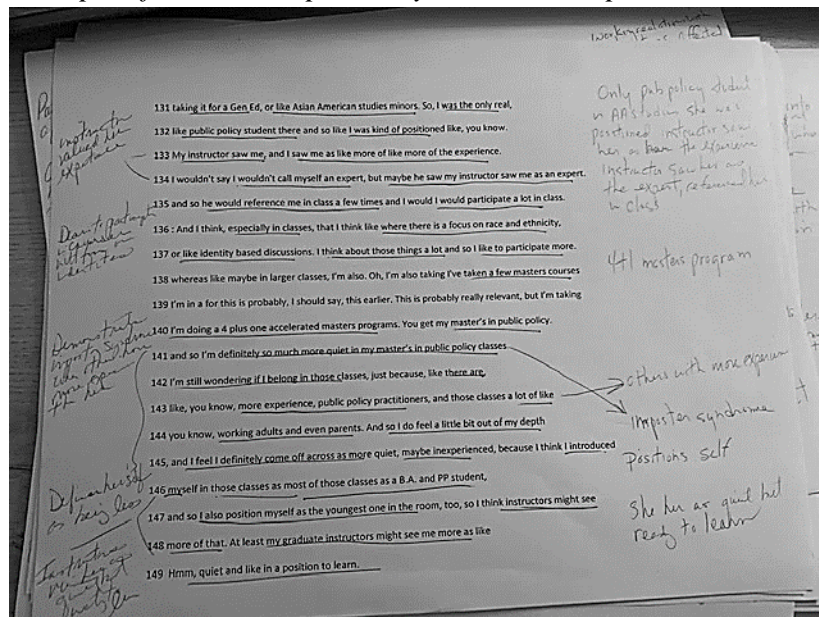 131 taking it for a Gen Ed, or like Asian American studies minors. So, I was the only real,
132 like public policy student there and so like I was kind of positioned like, you know.
133 My instructor saw me, and I saw me as like more of like more of the experience.
134 I wouldn't say I wouldn't call myself an expert, but maybe he saw my instructor saw me as an expert.
135 and so he would reference me in class a few times and I would I would participate a lot in class.
136 : And I think, especially in classes, that I think like where there is a focus on race and ethnicity,
137 or like identity based discussions. I think about those things a lot and so I like to participate more.
138 whereas like maybe in larger classes, I'm also. Oh, I'm also taking I've taken a few masters courses
139 I'm in a for this is probably, I should say, this earlier. This is probably really relevant, but I'm taking
140 I'm doing a 4 plus one accelerated masters programs. You get my master's in public policy.
141 and so I'm definitely so much more quiet in my master's in public policy classes
142 I'm still wondering if I belong in those classes, just because, like there are,
143 like, you know, more experience, public policy practitioners, and those classes a lot of like
144 you know, working adults and even parents. And so I do feel a little bit out of my depth
145, and I feel I definitely come off across as more quiet, maybe inexperienced, because I think I introduced
146 myself in those classes as most of those classes as a B.A. and PP student,
147 and so I also position myself as the youngest one in the room, too, so I think instructors might see
148 more of that. At least my graduate instructors might see me more as like
149 Hmm, quiet and like in a position to learn.
instructor
valued her
expertise
Demonstrates
imposter syndrome
more
Defines herself
as being less
Only pub policy student
in AA studies she was
positioned instructor saw
her as have the experience
Instructor saw her as
the expert, referenced her
in class
4+1 masters program
others with more experience
Imposter syndrome
Positions self
She her as quiet but
ready to learn